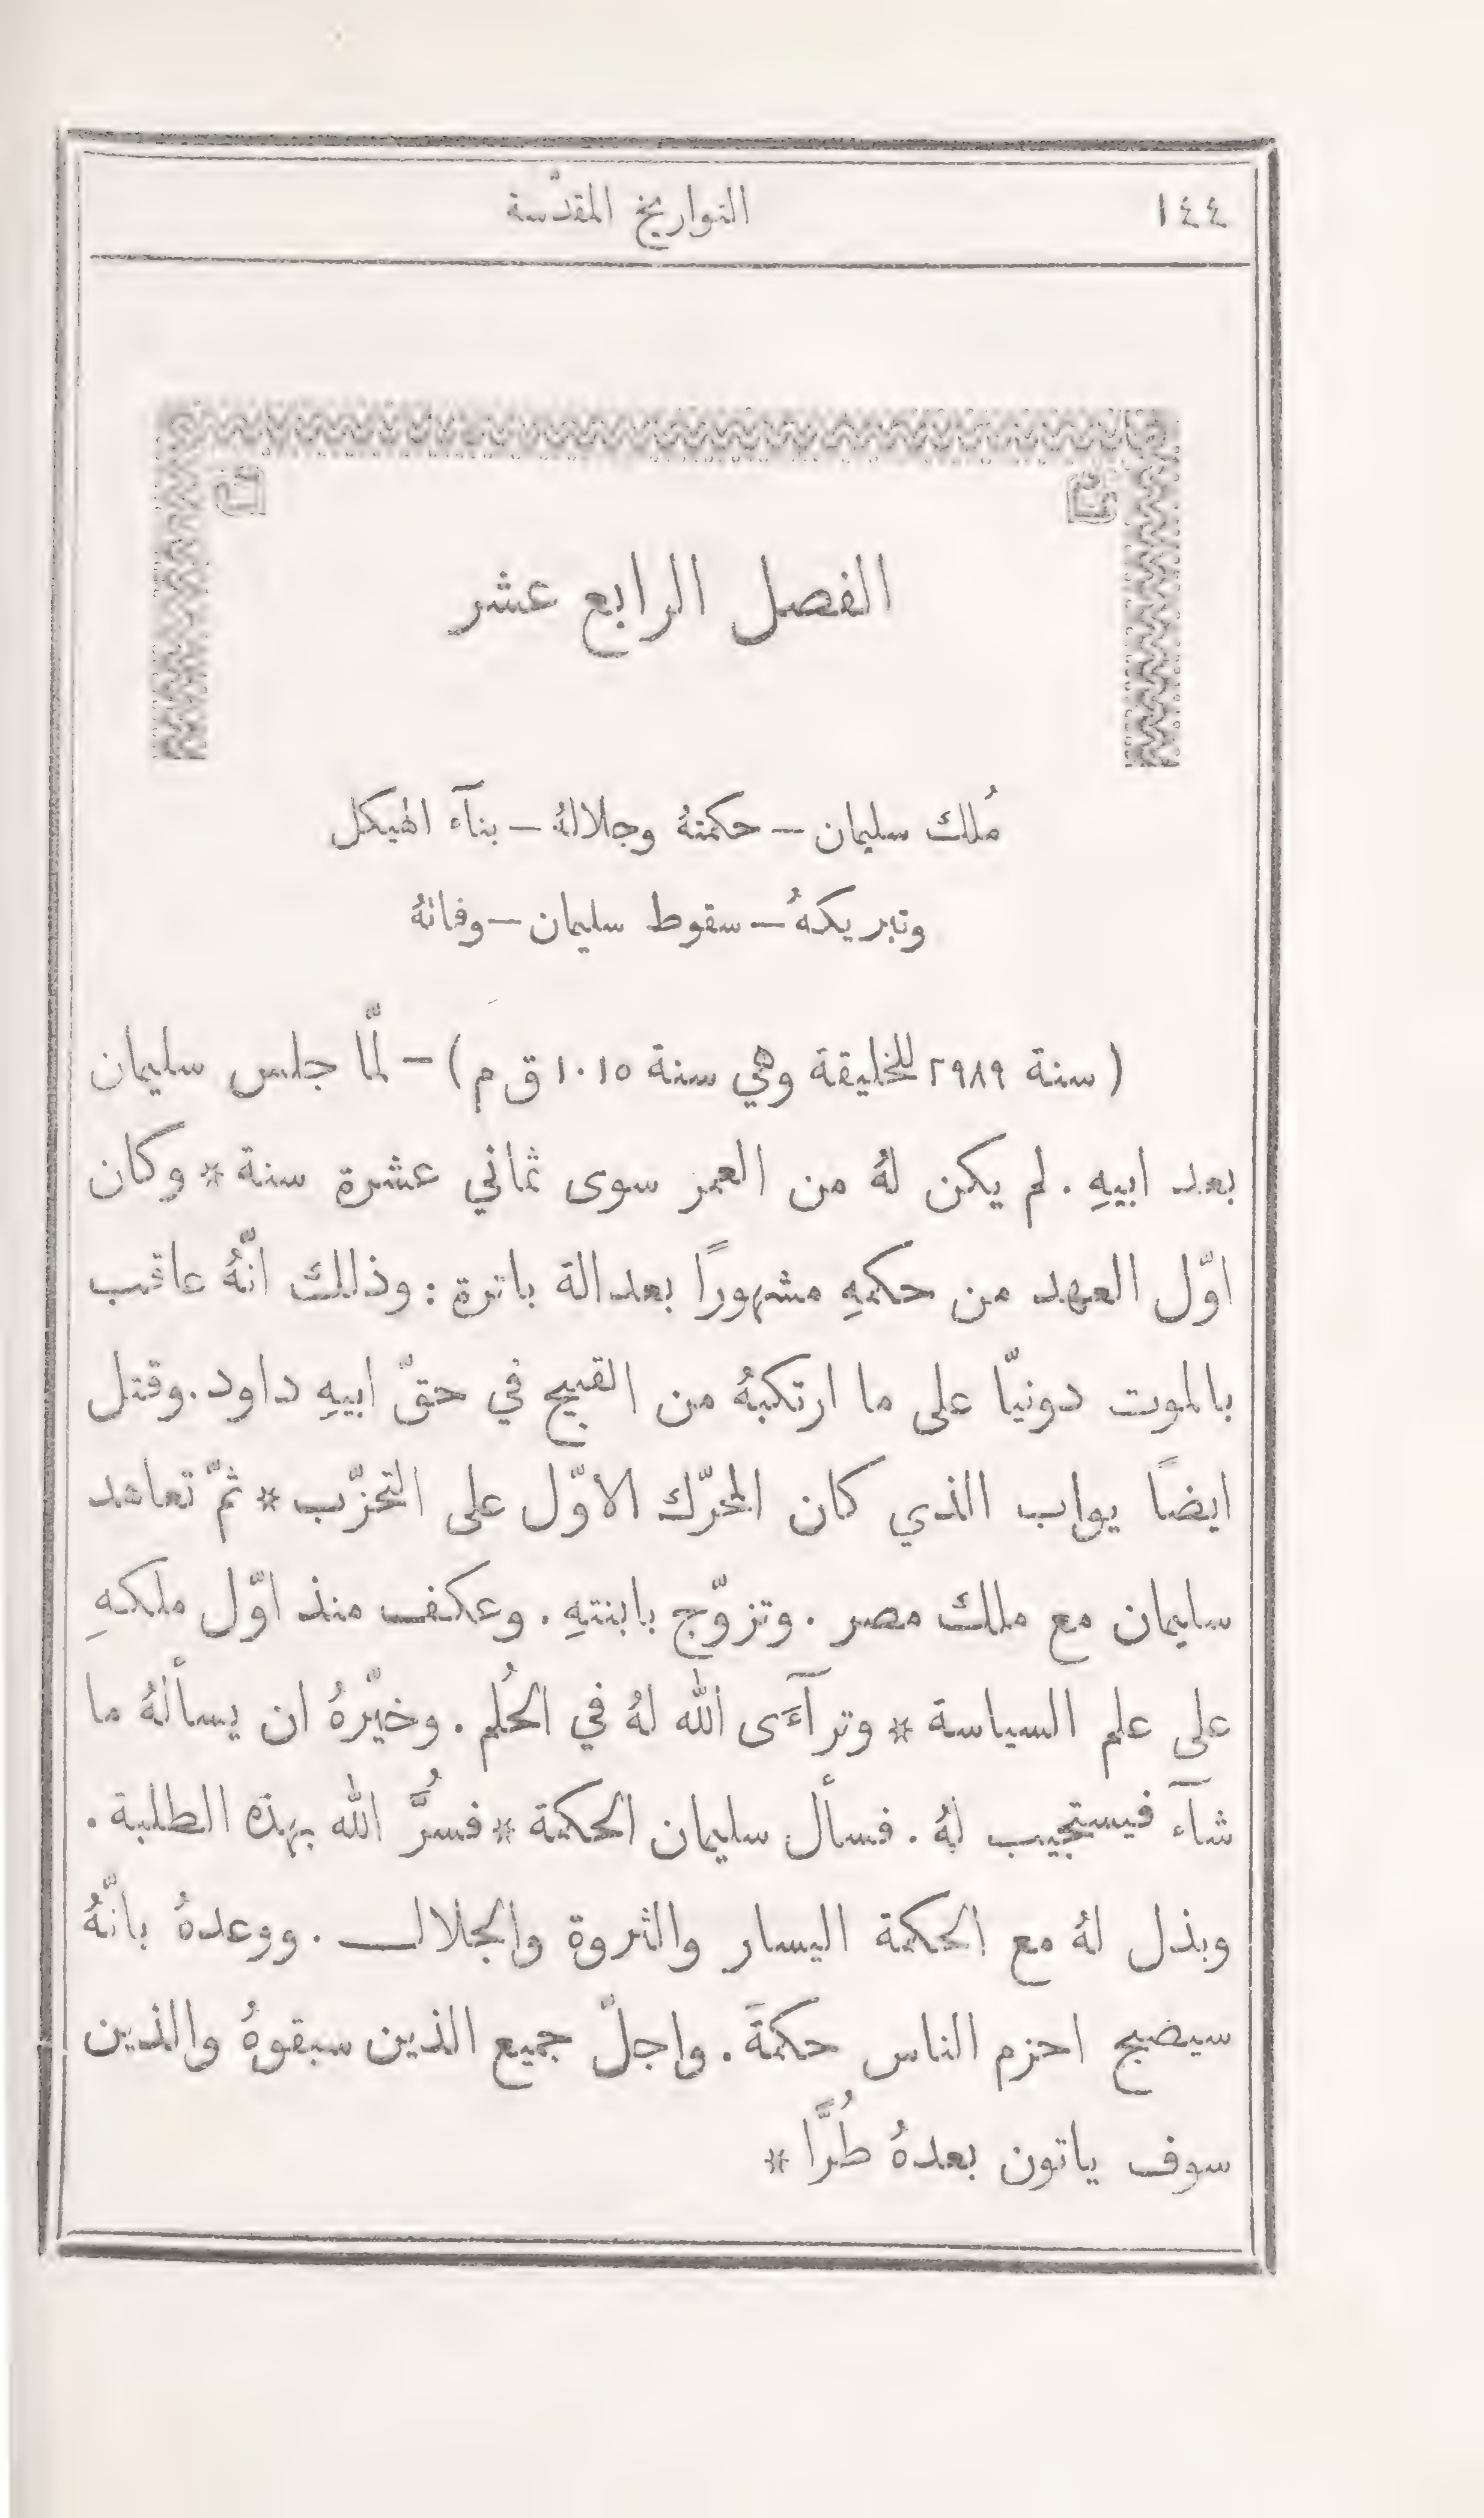 ١٤٤ التواريخ المقدّسة
الفصل الرابع عشر
مُلك سليمان – حكمتهُ وجلالهُ – بنآء الهيكل
وتبريكهُ – سقوط سليمان – وفاتهُ
( سنة ٢٩٨٩ للخليقة وهي سنة ١٠١٥ ق م ) – لمَّا جلس سليمان
بعد ابيهِ . لم يكن لهُ من العمر سوى ثماني عشرة سنة * وكان
اوّل العهد من حكمهِ مشهورًا بعدالة باترة : وذلك انَّهُ عاقب
بالموت دونيّا على ما ارتكبهُ من القبيح في حقّ ابيهِ داود . وقتل
ايضاً يواب الذي كان المحرّك الاوّل على التحزّب * ثمّ تعاهد
سليمان مع ملك مصر . وتزوّج بابنتهِ . وعكف منذ اوّل ملكهِ
على علم السياسة * وترآءَى الله لهُ في الحُلم . وخيّرهُ ان يسألهُ ما
شآء فيستجيب لهُ . فسأل سليمان الحكمة * فسُرَّ الله بهذه الطلبة .
وبذل لهُ مع الحكمة اليسار والثروة والجلال . ووعدهُ بانَّهُ
سيصبح احزم الناس حكمةً . واجلّ جميع الذين سبقوهُ والذين
سوف ياتون بعدهُ طُرًّا *